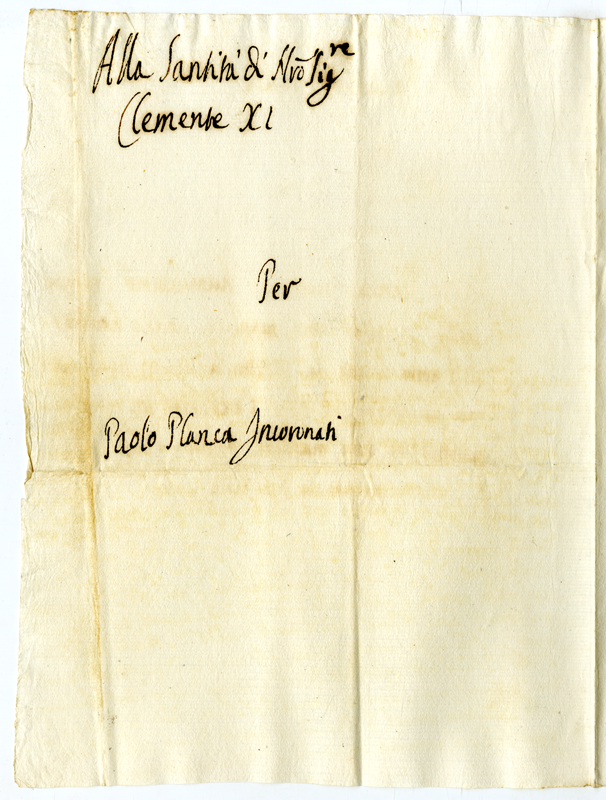 Alla Santità di Nrō Sigre
Clemente XI
Per
Paolo Planca Incoronati